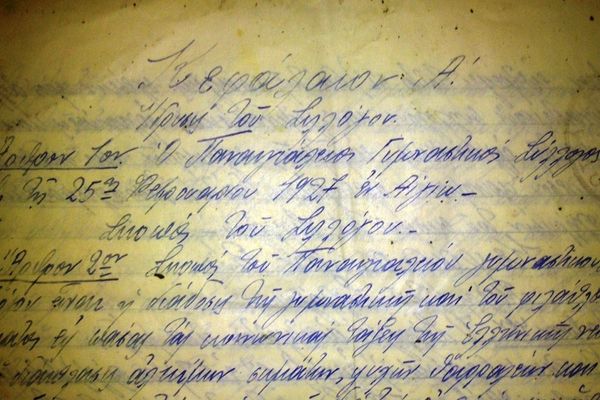 Κεφάλαιον Α!
Ίδρυσις του Συλλόγου.
Άρθρον 1ον. Ο Παναιγιάλειος Γυμναστικός Σύλλογος
τη 25η Φεβρουαρίου 1927 εν Αιγίω.
Σκοπός του Συλλόγου.
Άρθρον 2ον Σκοπός του Παναιγιαλείου γυμναστικού
είναι η διάδοσις της γυμναστικής και του φιλάθλου
εις πάσας τας κοινωνικάς τάξεις της Ελληνικής
διάπλασις αλκίμων σωμάτων, ψυχών θαρραλέων και